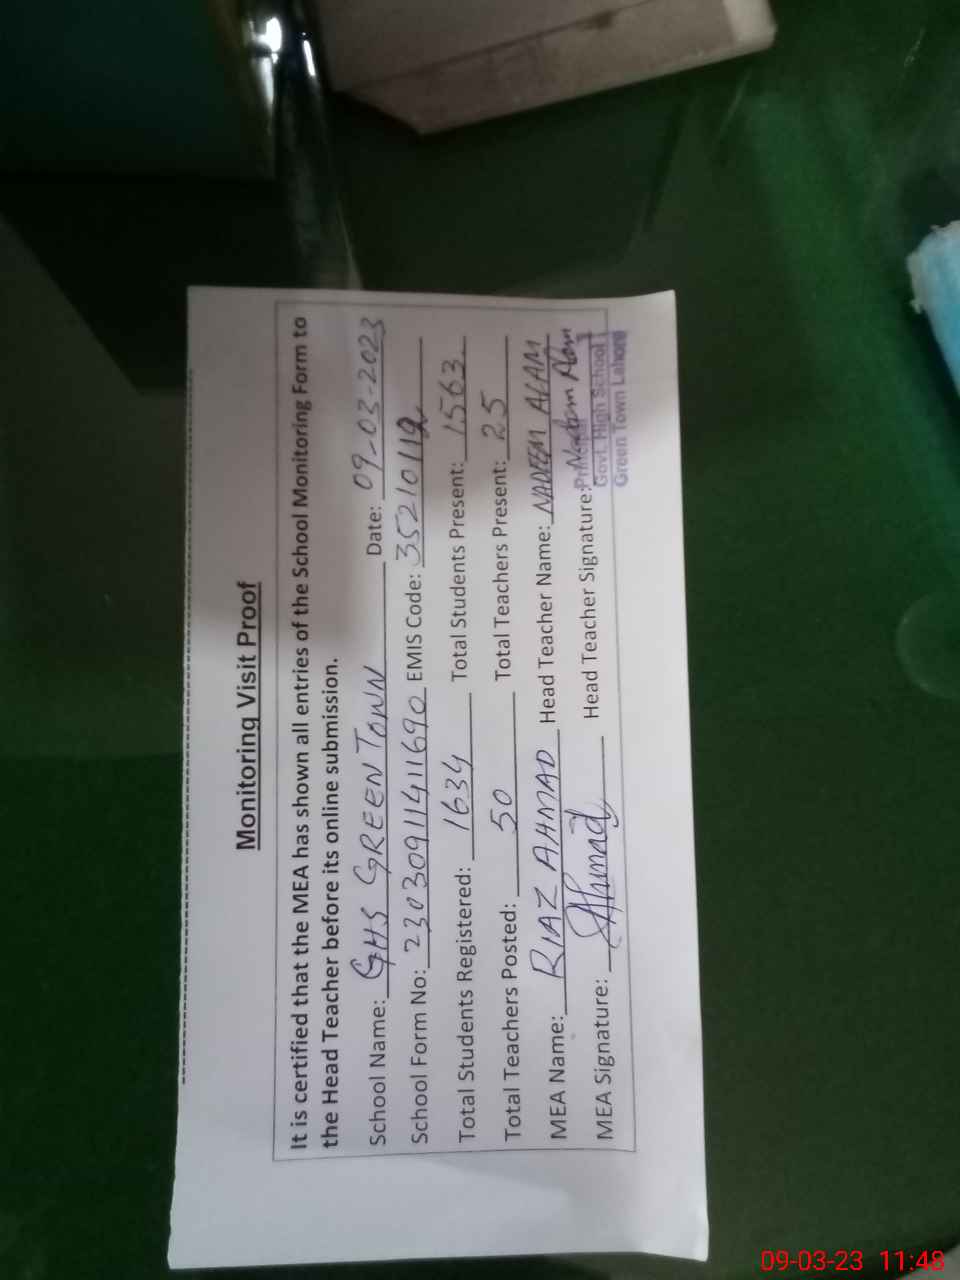 Monitoring Visit Proof
It is certified that the MEA has shown all entries of the School Monitoring Form to
the Head Teacher before its online submission.
School Name: GHS GREEN TOWN Date: 09-03-2023
School Form No: 23030911411690 EMIS Code: 35210119
Total Students Registered: 1634 Total Students Present: 1563
Total Teachers Posted: 50 Total Teachers Present: 25
MEA Name: RIAZ AHMAD Head Teacher Name: NADEEM ALAM
MEA Signature: Ahmad Head Teacher Signature: Nadeem Alam
Govt. High School
Green Town Lahore
09-03-23 11:48